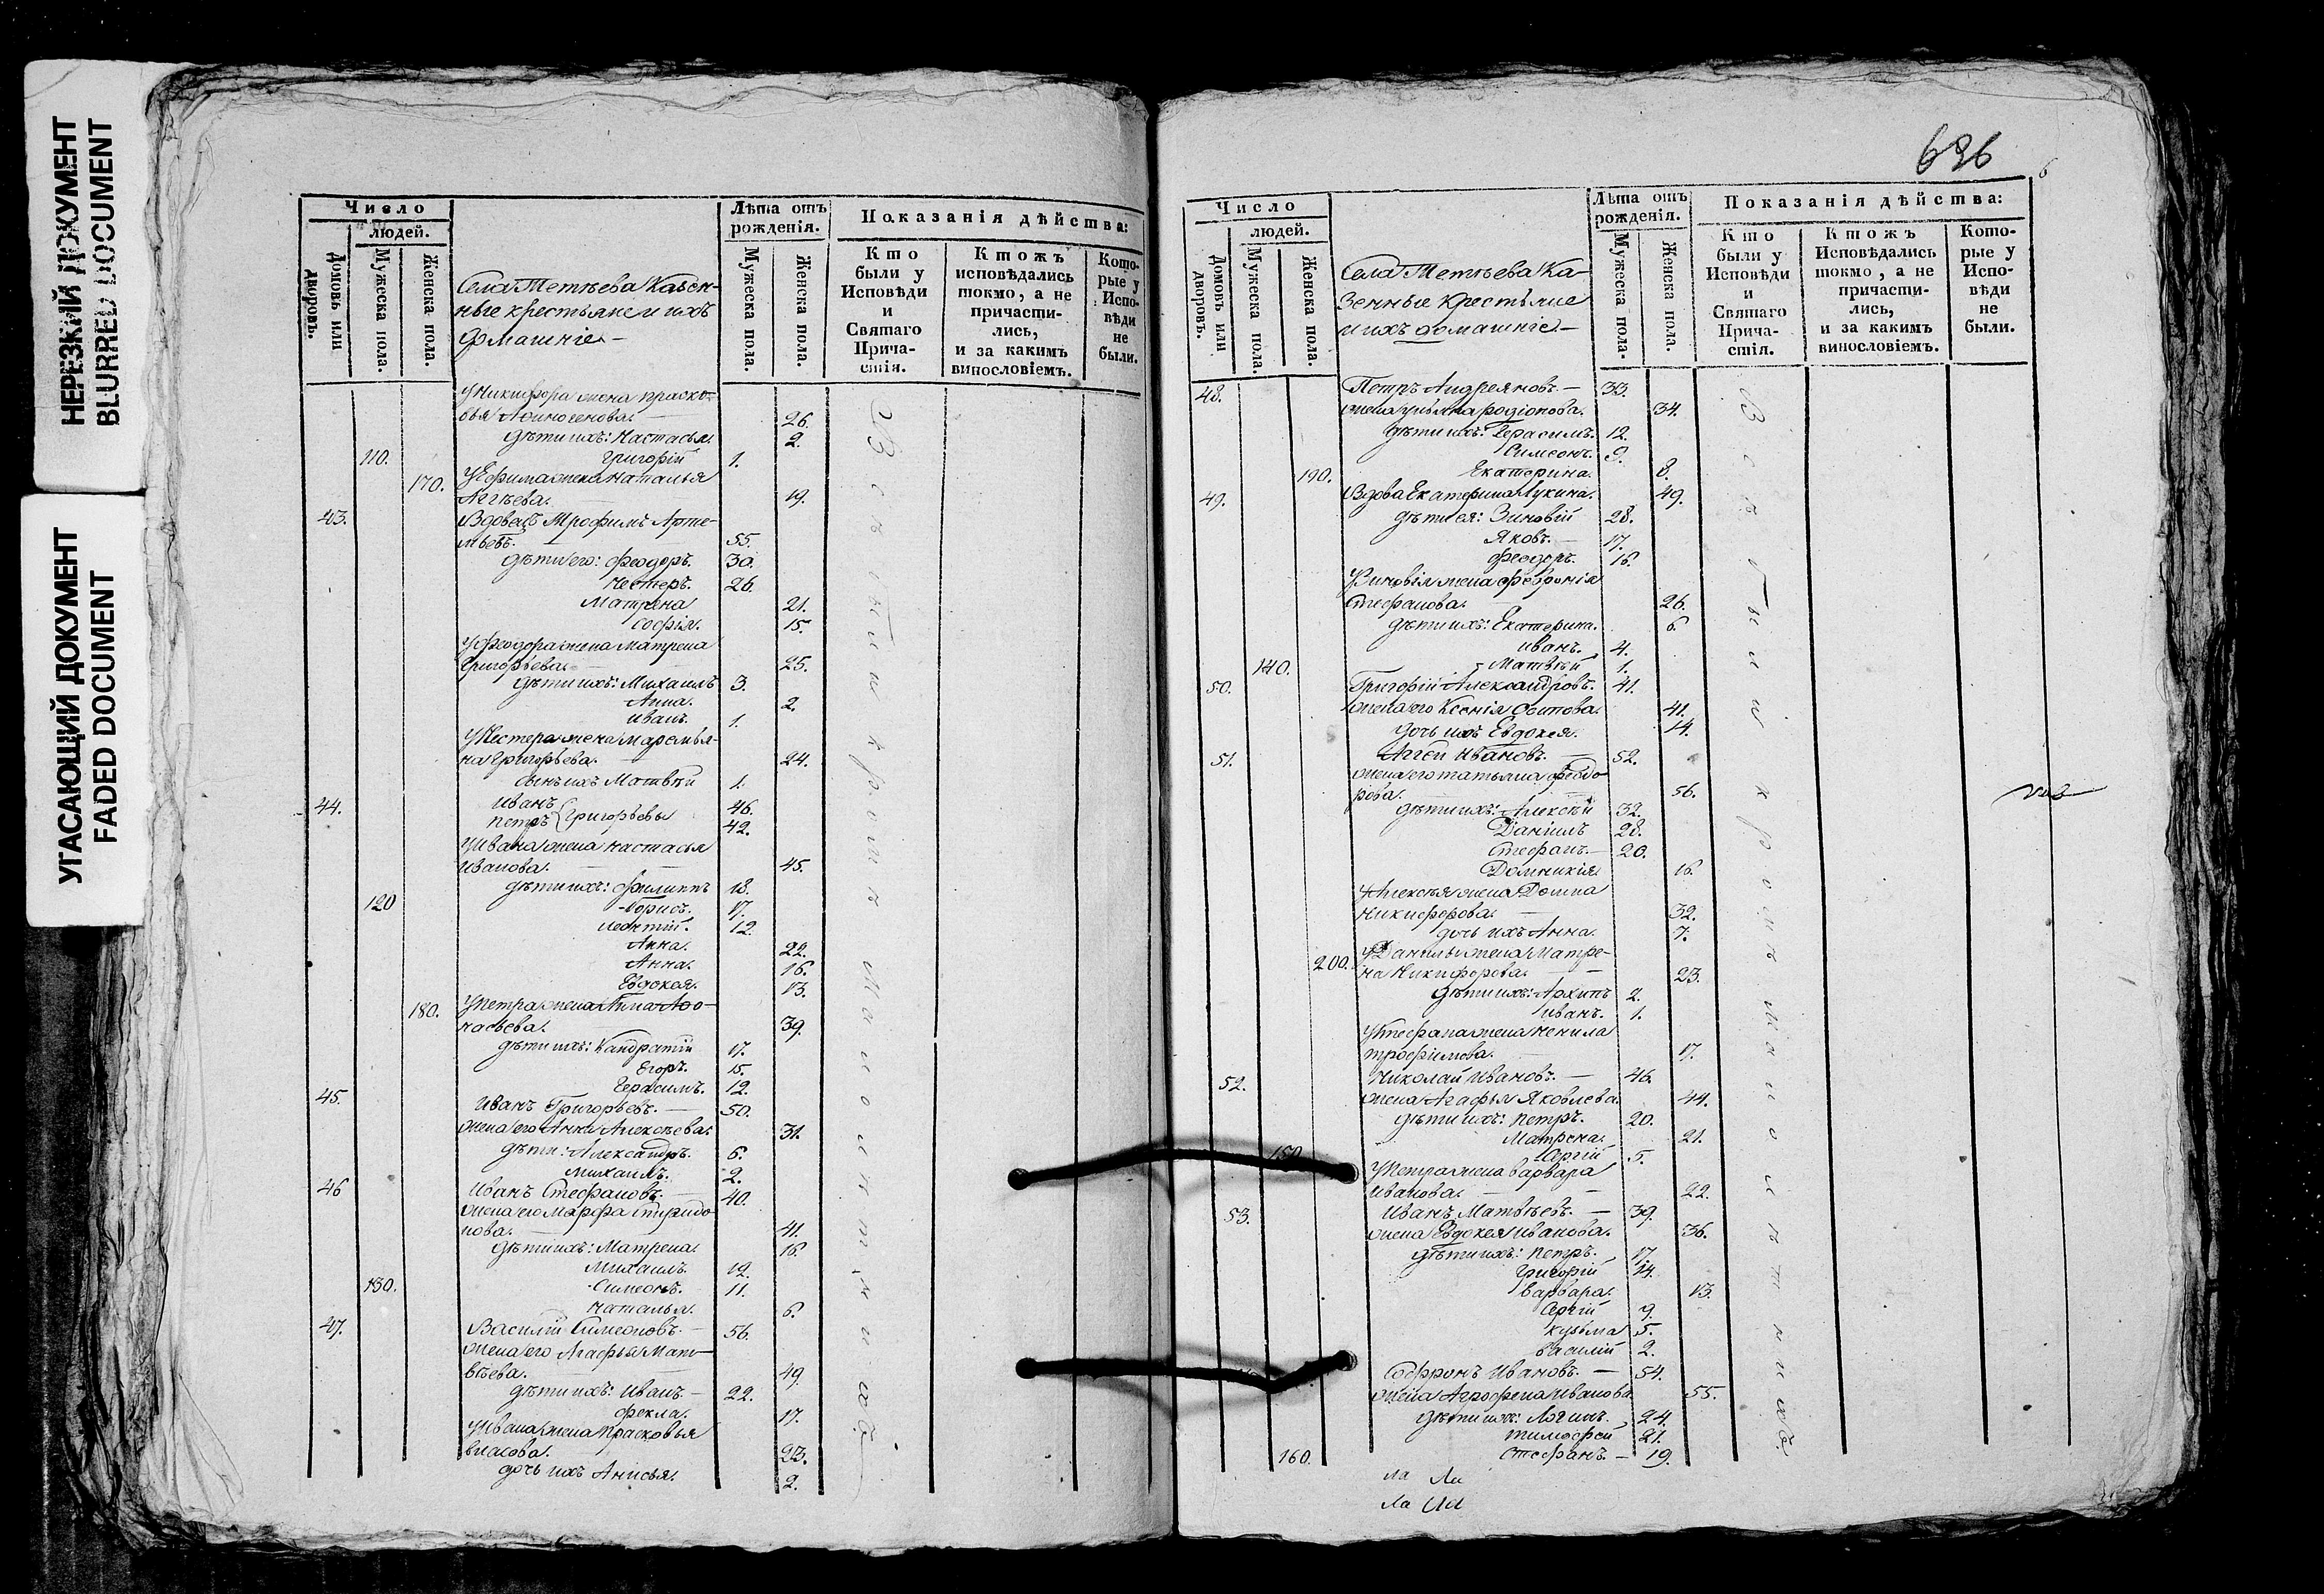 НЕРЕЗКИЙ ДОКУМЕНТ
BLURRED DOCUMENT
УГАСАЮЩИЙ ДОКУМЕНТ
FADED DOCUMENT
Число
людей.
Домовъ или дворовъ.
Мужеска пола.
Женска пола.
Села Метѣева Казен-
ные крестьяне и ихъ
домашніе
Лѣта отъ рожденія.
Мужеска пола.
Женска пола.
Показанія дѣйства:
Кто были у Исповѣди и Святаго Прича-стія.
Ктожъ исповѣдались токмо, а не причасти-лись, и за какимъ винословіемъ.
Кото-рые у Испо-вѣди не были.
У Никифора жена Праско-
вья 26.
дѣти ихъ: Настасья 2.
110. Григорій 1.
170. У Ефима жена Наталья
Аггѣева. 19.
43. Вдовецъ Трофимъ Арте-
мьевъ. 55.
дѣти его: Феодоръ. 30.
Нестеръ. 26.
Матрена 21.
Софія. 15.
У Феодора жена Матрена
Григорьева. 25.
дѣти ихъ: Михаилъ 3.
Анна. 2.
Иванъ. 1.
У Нестера жена Маремья-
на Григорьева. 24.
сынъ ихъ Матвѣй 1.
44. Иванъ 46.
Петръ Григорьевы 42.
У Ивана жена Настасья
Иванова. 45.
дѣти ихъ: Филиппъ 18.
120 Борисъ. 17.
Леонтій. 12.
Анна. 22.
Анна. 16.
Евдокея. 13.
180. У Петра жена Анна Афо-
насьева. 39.
дѣти ихъ: Кандратій 17.
Егоръ. 15.
Герасимъ. 12.
45. Иванъ Григорьевъ. 50.
жена его Анна Алексѣева. 31.
дѣти: Александръ. 6.
Михаилъ. 2.
46 Иванъ Стефановъ. 40.
жена его Марфа Спиридо
нова. 41.
дѣти ихъ: Матрена. 16.
Михаилъ 12.
130. Симеонъ. 11.
Наталья. 6.
47. Василій Симеоновъ. 56.
жена его Агафья Мат-
вѣева. 49.
дѣти ихъ: Иванъ. 22.
Фекла. 17.
У Ивана жена Прасковья
Власова. 23.
дочь ихъ Анисья. 2.
696
6
Число
людей.
Домовъ или дворовъ.
Мужеска пола.
Женска пола.
Села Метѣева Ка-
зенные крестьяне
и ихъ домашніе
Лѣта отъ рожденія.
Мужеска пола.
Женска пола.
Показанія дѣйства:
Кто были у Исповѣди и Святаго Прича-стія.
Ктожъ Исповѣдались токмо, а не причасти-лись, и за какимъ винословіемъ.
Кото-рые у Испо-вѣди не были.
48. Петръ Андреяновъ. 33.
жена Ульяна Родіонова. 34.
дѣти ихъ: Герасимъ. 12.
Симеонъ. 9.
190. Екатерина. 8.
49. Вдова Екатерина Лукина. 49.
дѣти ея: Зиновій 28.
Яковъ. 17.
Феодоръ. 16.
У Зиновія жена Февронія
Стефанова. 26.
дѣти ихъ: Екатерина. 6.
Иванъ. 4.
140. Матвѣй 1.
50. Григорій Александровъ. 41.
жена его Ксенія Осипова. 41.
дочь ихъ Евдокея. 14.
51. Аггей Ивановъ. 52.
жена его Татьяна Феодо
рова. 56.
дѣти ихъ: Алексѣй 32.
Даніилъ 28.
Стефанъ. 20.
Домникія 16.
У Алексѣя жена Домна
Никифорова. 32.
дочь ихъ Анна. 7.
200. У Данилы жена Матре-
на Никифорова. 23.
дѣти ихъ: Архипъ 2.
Иванъ. 1.
У Стефана жена Ненила
Трофимова. 17.
52. Николай Ивановъ. 46.
жена Агафья Яковлева. 44.
дѣти ихъ: Петръ. 20.
Матрена. 21.
150. Сергій 5.
У Петра жена Варвара
Иванова. 22.
53. Иванъ Матвѣевъ. 39.
жена Евдокея Иванова. 36.
дѣти ихъ: Петръ. 17.
Григорій 14.
Варвара. 13.
Сергій 9.
Кузьма 5.
Василій 2.
Софронъ Ивановъ. 54.
жена Агрофена Иванова. 55.
дѣти ихъ: Логинъ. 24.
Тимофей 21.
160. Стефанъ. 19.